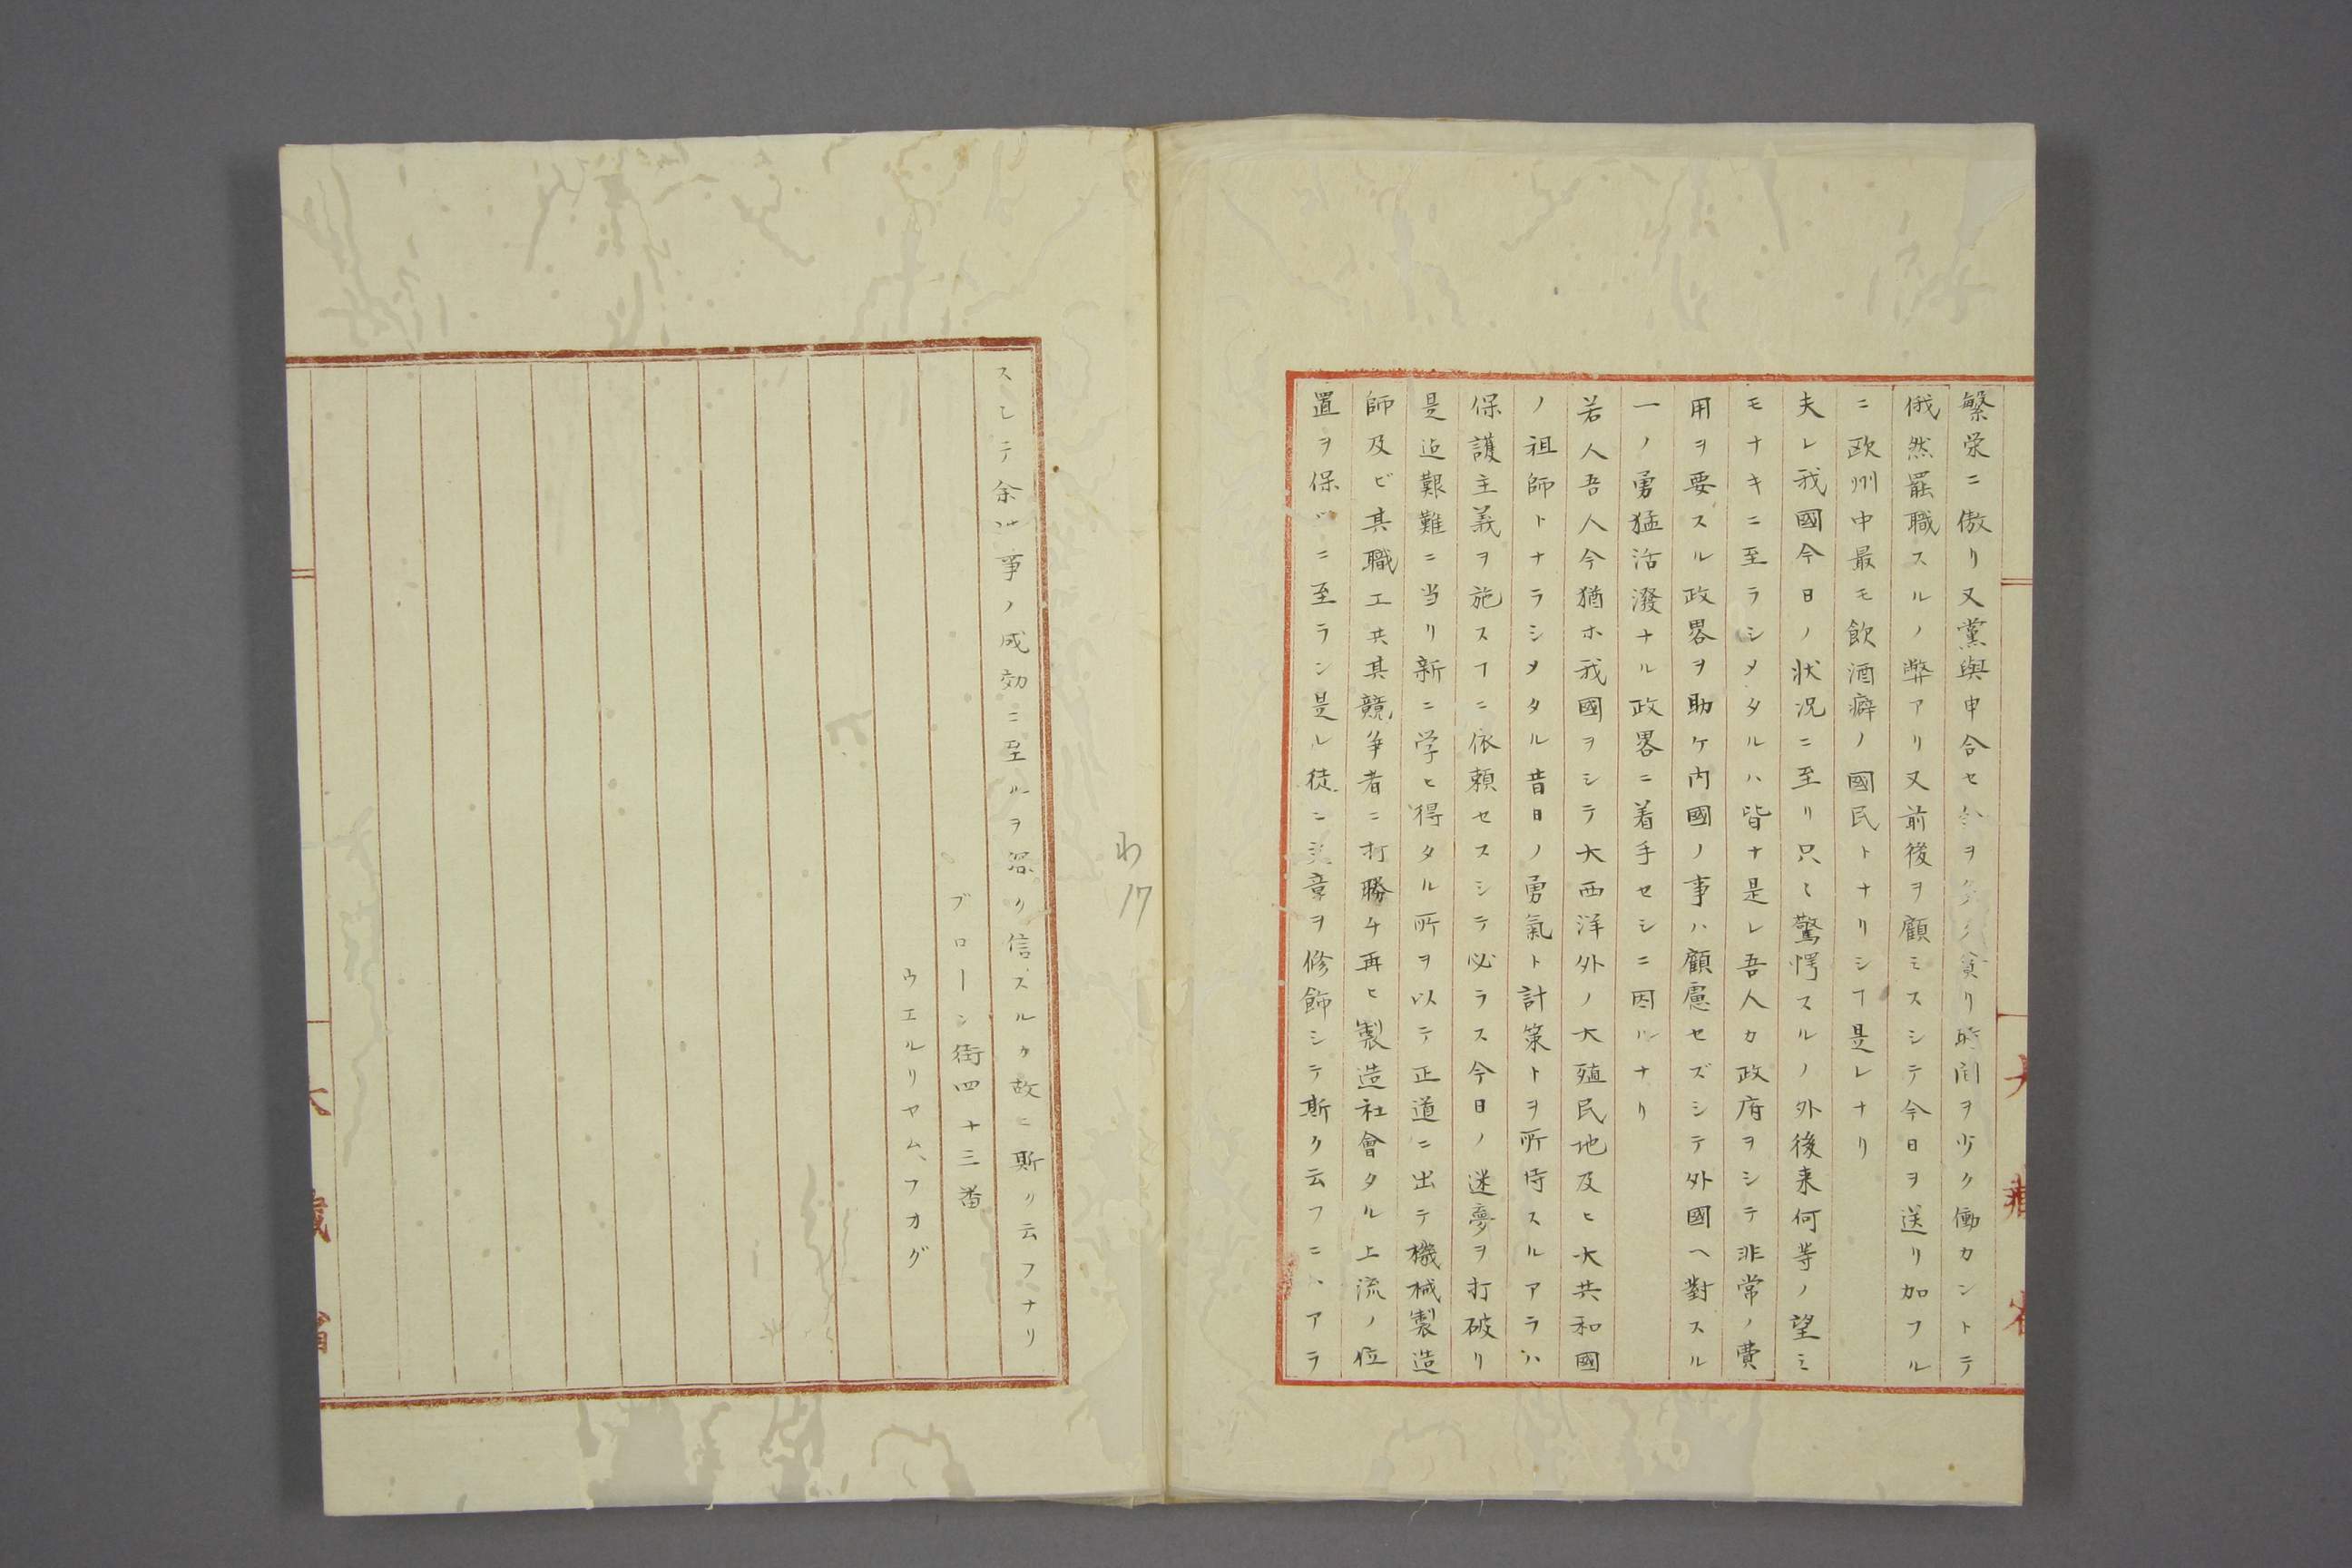 繁栄ニ傲リ又黨與申合セ
貧リ時間ヲ少ク働カントテ
俄然罷職スルノ弊アリ又前後ヲ顧ミスシテ今日ヲ送リ加フル
ニ欧州中最モ飲酒癖ノ國民トナリシヿ是レナリ
夫レ我國今日ノ状况ニ至リ只々驚愕スルノ外後来何等ノ望ミ
モナキニ至ラシメタルハ皆ナ是レ吾人カ政府ヲシテ非常ノ費
用ヲ要スル政畧ヲ助ケ内國ノ事ハ顧慮セズシテ外國ヘ對スル
一ノ勇猛活潑ナル政畧ニ着手セシニ因ルナリ
若人吾人今猶ホ我國ヲシテ大西洋外ノ大殖民地及ヒ大共和國
ノ祖師トナラシメタル昔日ノ勇氣ト計策トヲ所持スルアラハ
保護主義ヲ施スヿニ依頼セスシテ必ラス今日ノ迷夢ヲ打破リ
是迠艱難ニ当リ新ニ学ヒ得タル所ヲ以テ正道ニ出テ機械製造
師及ビ其職工共其競争者ニ打勝チ再ヒ製造社會タル上流ノ位
置ヲ保ツニ至ラン是レ徒ニ文章ヲ修飾シテ斯ク云フニハアラ
スシテ余此事ノ成効ニ至ルヲ深ク信ズルカ故ニ斯ク云フナリ
ブローン街四十三番
ウエルリヤム、フオグ
わ
17
大藏省